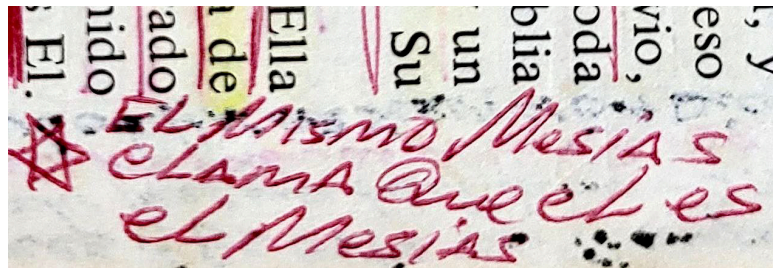 s El.
nido
ado
n de
Ella
Su
un
blia
oda
vio,
eso
, y
EL MISMO MESIAS
CLAMA QUE EL ES
EL MESIAS